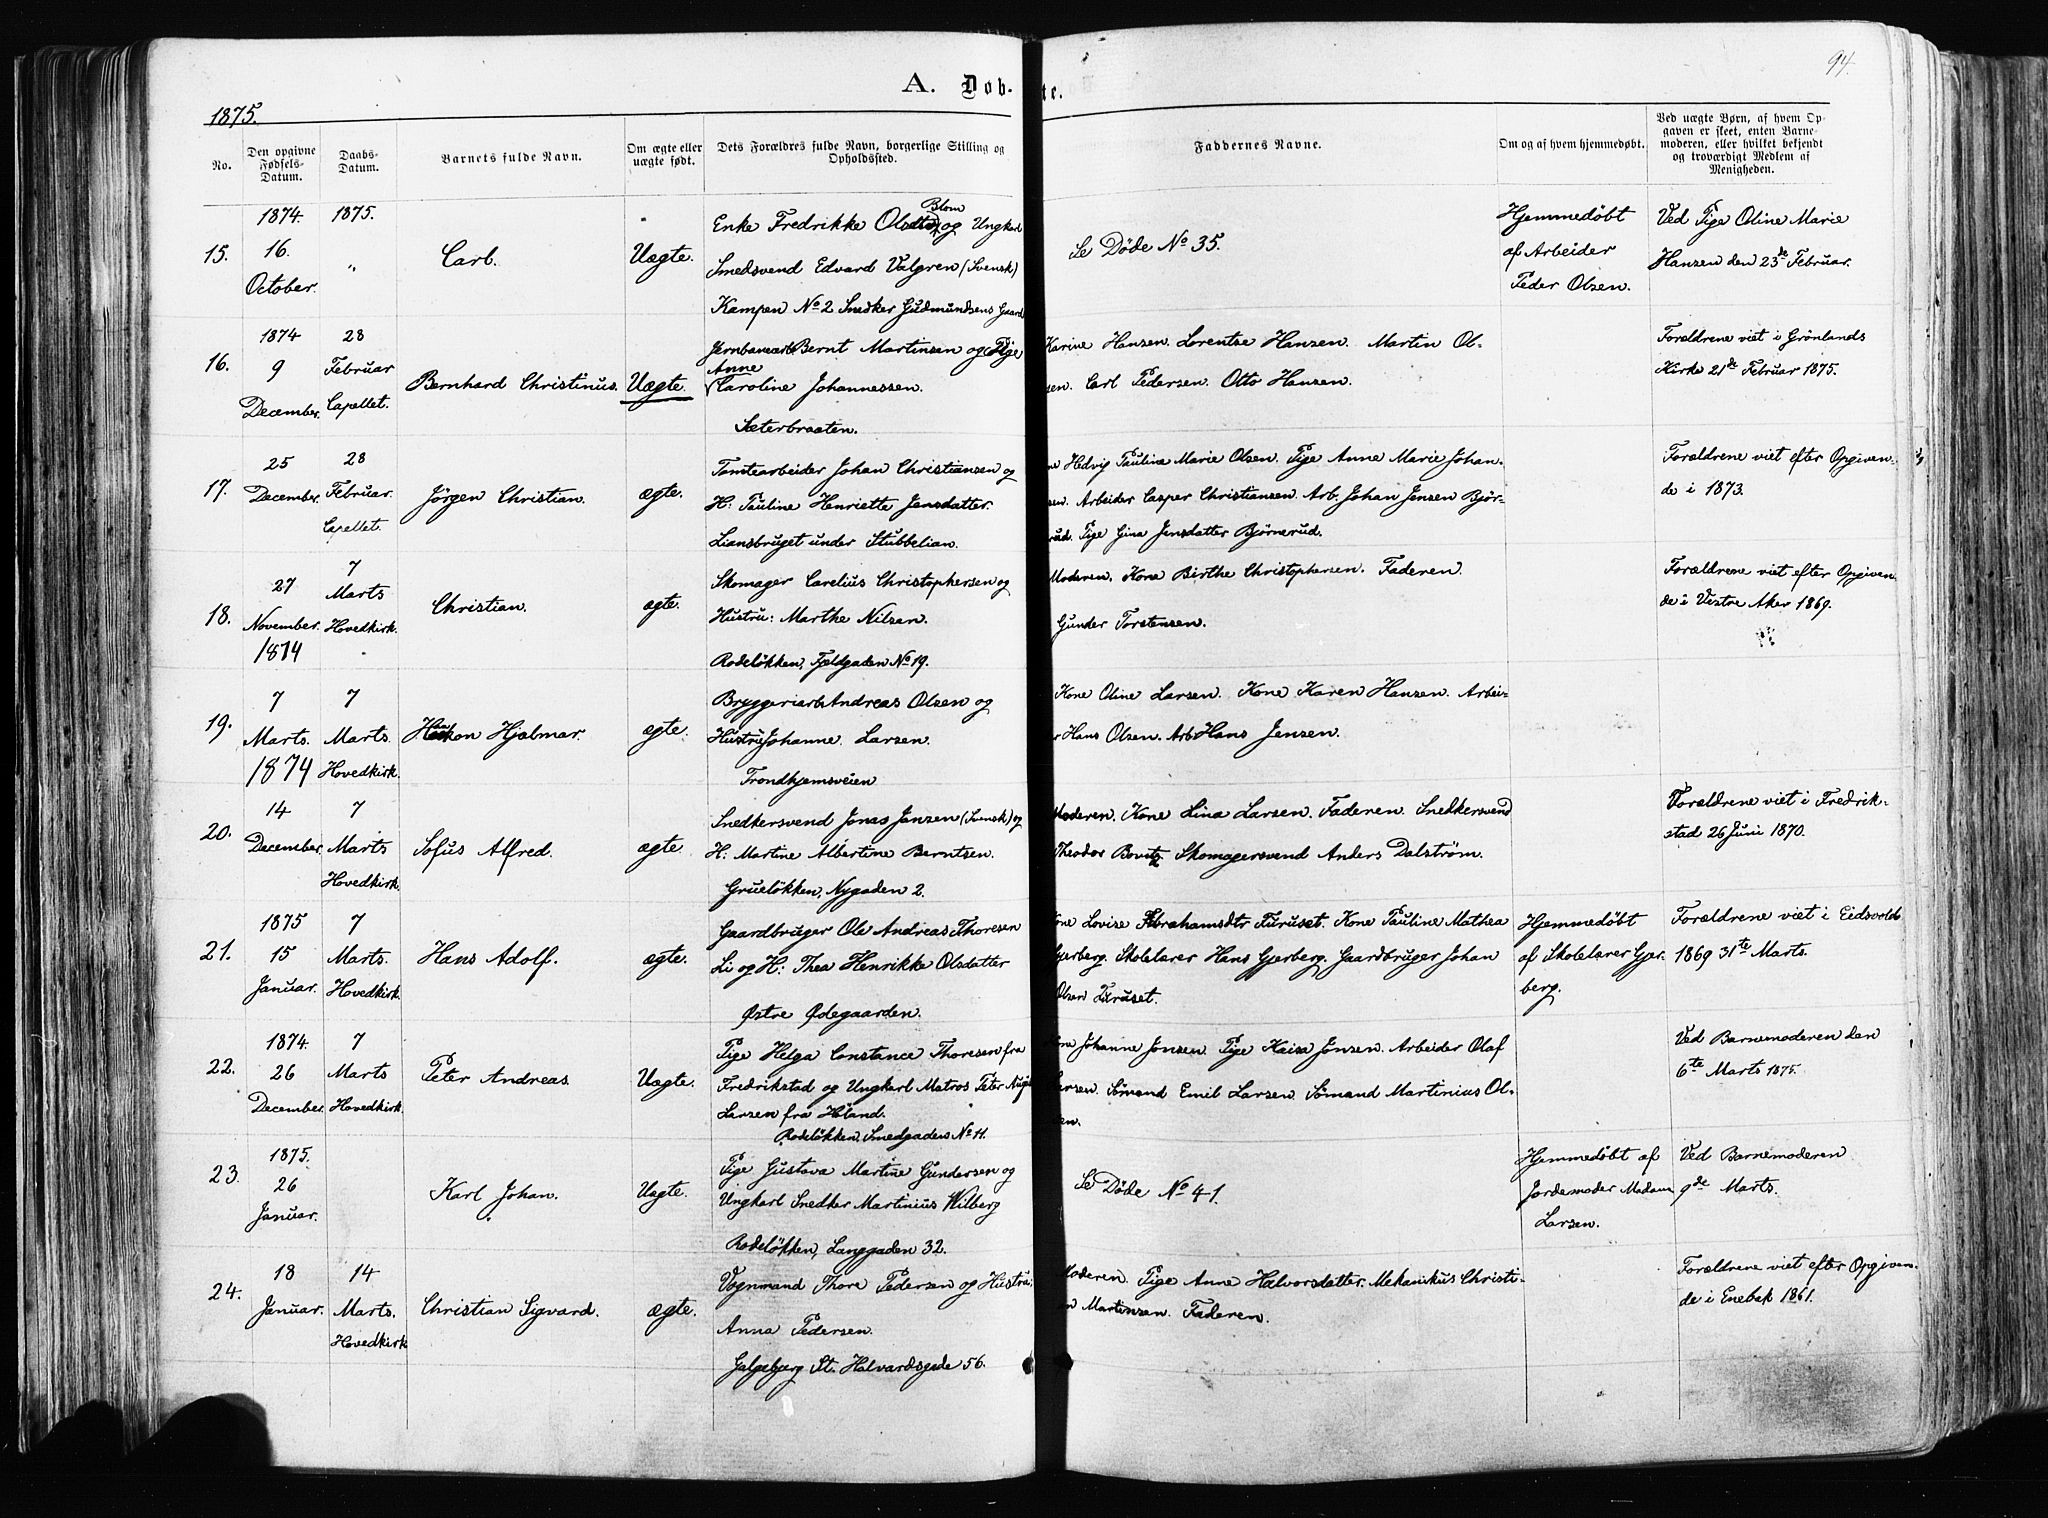 94.
A. Døb-te.
1875.
No.
Den opgivne Fødsels-Datum.
Daabs-Datum.
Barnets fulde Navn.
Om ægte eller uægte født.
Dets Forældres fulde Navn, borgerlige Stilling og Opholdssted.
Faddernes Navne.
Om og af hvem hjemmedøbt.
Ved uægte Børn, af hvem Opgaven er skeet, enten Barnemoderen, eller hvilket bekjendt og troværdigt Medlem af Menigheden.
15.
1874. 16. October.
1875. "
Carl.
Uægte.
Enke Fredrikke Blom og Ungkarl
Smedsvend Edvard Valgren (Svensk)
Kampen No 2 Snedker Gudmundsens Gaard
Se Døde No 35.
Hjemmedøbt
af Arbeider
Peder Olsen.
Ved Pige Oline Marie
Hanzen den 23de Februar.
16.
1874 9 December.
28 Februar Capellet.
Bernhard Christinus.
Uægte.
Jernbanearb. Bernt Martinsen og Pige
Anne
Caroline Johannessen.
Sæterbraaten.
Karine Hansen. Lorentse Hansen. Martin Ol-
sen. Carl Pedersen. Otto Hansen.
Forældrene viet i Grönlands
Kirke 21de Februar 1875.
17.
25 December.
28 Februar. Capellet.
Jörgen Christian.
ægte.
Tomtearbeider Johan Christiansen og
H: Pauline Henriette Jensdatter.
Liansbruget under Stubbelian.
ne Hedvig Pauline Marie Olsen. Pige Anne Marie Johan-
sen. Arbeider Casper Christiansen. Arb. Johan Jensen Bjør-
rud. Pige Gina Jensdatter Bjørnerud.
Forældrene viet efter Opgiven-
de i 1873.
18.
27 November. 1874
7 Marts Hovedkirk.
Christian.
ægte.
Skomager Carelius Christophersen og
Hustru: Marthe Nilsen.
Rodeløkken, Fjeldgaden No 19.
Moderen. Kone Birthe Christophersen. Faderen.
Gunder Torstensen.
Forældrene viet efter Opgiven-
de i Vestre Aker 1869.
19.
7 Marts. 1874
7 Marts. Hovedkirk.
Haakon Hjalmar.
ægte.
Bryggeriarb. Andreas Olsen og
Hustru Johanne Larsen.
Trondhjemsveien
Kone Oline Larsen. Kone Karen Hansen. Arbei-
r Hans Olsen. Arb. Hans Jensen.
20.
14 December.
7 Marts Hovedkirk.
Sofus Alfred.
ægte.
Snedkersvend Jonas Janzen (Svensk) og
H: Martine Albertine Berntsen.
Grueløkken, Nygaden 2.
Moderen. Kone Lina Larsen. Faderen. Snedkersvend
Theodor Bovitz Skomagersvend Anders Dalstrøm.
Forældrene viet i Fredrik-
stad 26 Juni 1870.
21.
1875 15 Januar.
7 Marts. Hovedkirk.
Hans Adolf.
ægte.
Gaardbruger Ole Andreas Thoresen
Li og H: Thea Henrikke Olsdatter
Østre Ødegaarden.
one Lovise Abrahamsdtr Furuset. Kone Pauline Mathea
Gjerberg. Skolelærer Hans Gjerberg. Gaardbruger Johan
Olsen Furuset.
Hjemmedøbt
af Skolelærer Gjer-
berg.
Forældrene viet i Eidsvold
1869 31te Marts.
22.
1874. 26 December.
7 Marts Hovedkirk.
Peter Andreas
Uægte.
Pige Helga Constance Thoresen fra
Fredrikstad og Ungkarl Matros Peter
Larsen fra Høland.
Rodeløkken, Smedgaden No 11.
Kone Johanne Jonsen. Pige Kaisa Jonsen. Arbeider Olaf
Larsen. Sömand Emil Larsen. Sömand Martinius Ol-
sen.
Ved Barnemoderen den
6te Marts 1875.
23.
1875. 26 Januar.
Karl Johan.
Uægte.
Pige Gustava Martine Gundersen og
Ungkarl Snedker Martinius Wilberg
Rodeløkken, Langgaden 32.
Se Døde No 41.
Hjemmedøbt af
Jordemoder Madam
Larsen.
Ved Barnemoderen
9de Marts.
24.
18 Januar.
14 Marts. Hovedkirk
Christian Sigvard.
ægte.
Vognmand Thore Pedersen og Hustru:
Anna Pedersen.
Galgeberg St. Halvardsgade 56.
Moderen. Pige Anne Halvorsdatter. Mekanikus Christi-
an Martinsen. Faderen.
Forældrene viet efter Opgiven-
de i Enebak 1861.